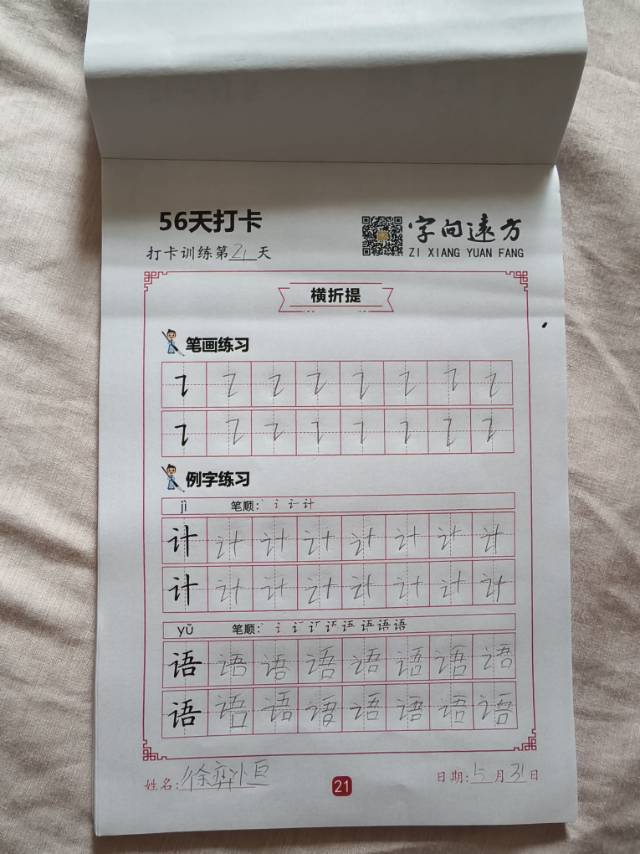 56天打卡
字向遠方
打卡训练第21天
ZI XIANG YUAN FANG
横折提
笔画练习
例字练习
jì 笔顺: 计
计 计 计 计 计 计 计 计
计 计 计 计 计 计 计 计
yǔ 笔顺: 语
语 语 语 语 语 语 语 语
语 语 语 语 语 语 语 语
姓名: 徐弈恒
21
日期: 5月31日